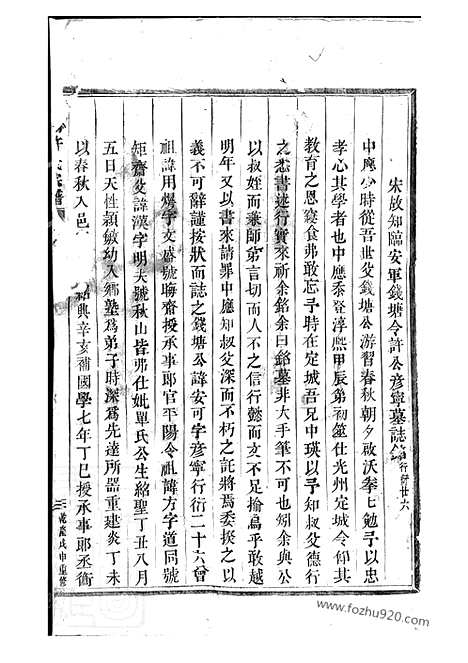 宋故知臨安軍錢塘令許公彦寧墓誌銘行衍廿六
中應少時從吾世父錢塘公游習春秋朝夕啟沃拳七勉予以忠
孝心其學者也中應忝登淳熙甲辰第初筮仕光州定城令仰其
教育之恩寢食弗敢忘予時在定城吾兄中瑛以予知叔父德行
之悉書述行實來祈余銘余曰銘墓非大手筆不可矧余與公
以叔姪而兼師弟言切而人不之信行懿而文不足揄昌乎敢越
明年又以書來請罪中應知叔父深而不朽之託將焉委揆之以
義不可辭謹按狀而誌之錢塘公諱安可字彦寧行衍二十六曾
祖諱用燁字文盛號晦齋授承事郎官平陽令祖諱方字道同號
矩齋父諱漢字明夫號秋山皆弗仕妣單氏公生紹聖丁丑八月
五日天性穎敏幼入鄉塾爲弟子時深爲先達所器重建炎丁未
以春秋入邑 紹興辛亥補國學七年丁巳授承事郎丞衢
乾隆戊申重修
www.fozhu920.com